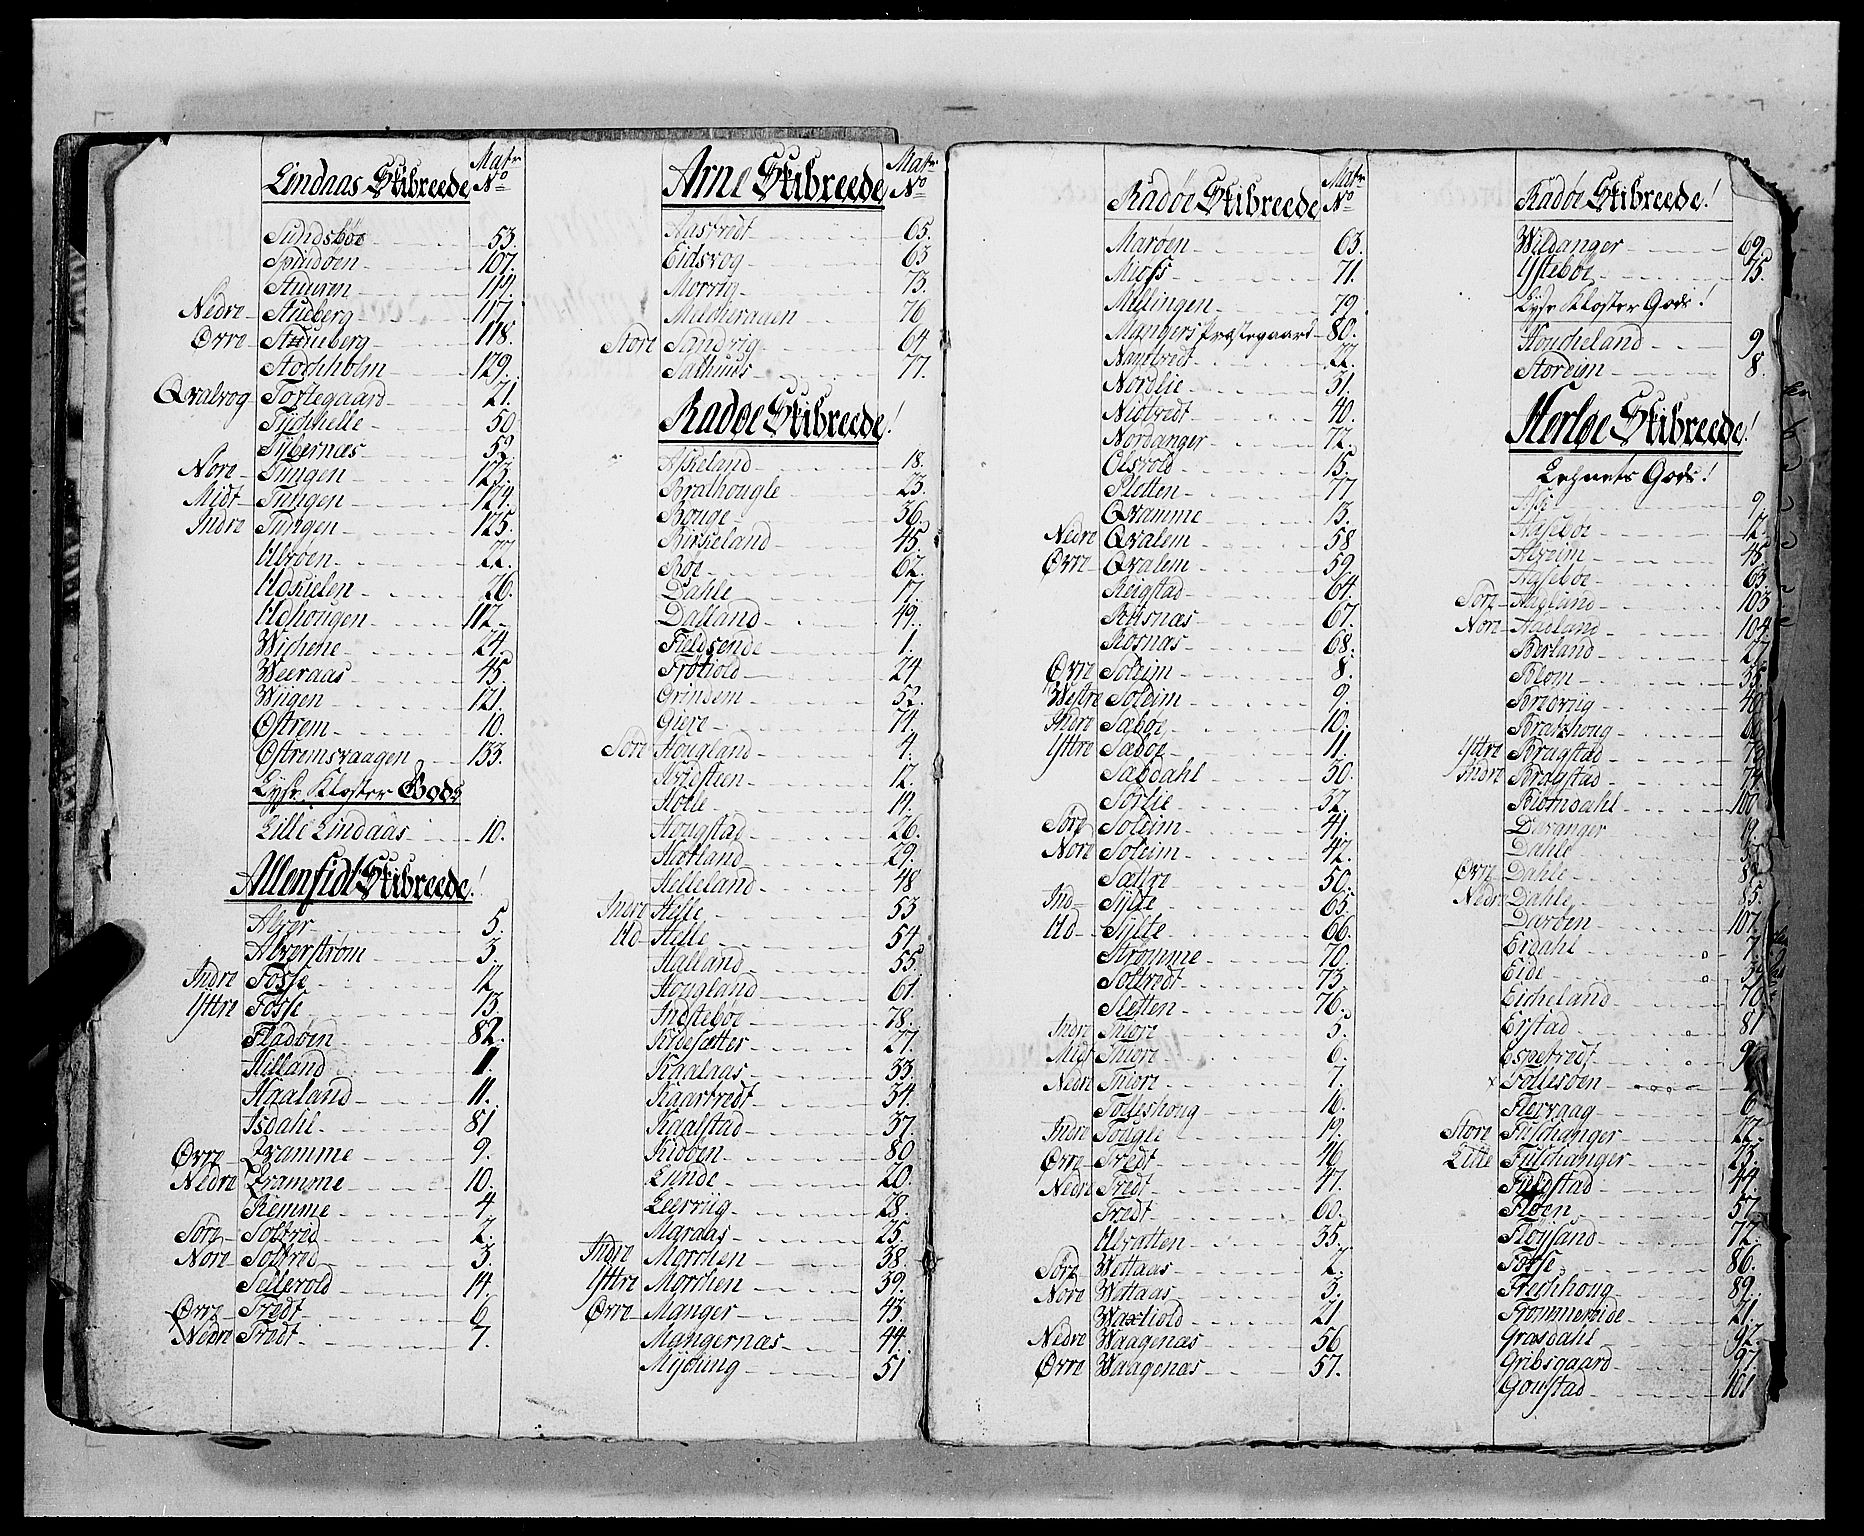 Lindaas Skibreede Matr No
Sundsbøe 53.
Spiudøen 107.
Stuuren 114.
Nedre Studberg 117.
Øvre Studberg 118.
Stochholm 129.
Qvalvog Torstegaard 21.
Tychhelle 50
Tybernæs 52
Nore Tungen 123.
Midt Tungen 124.
Indre Tungen 125.
Ulvøen 22.
Udkielen 26.
Udhougen 112.
Wichene 24.
Weeraas 45.
Wiigen 121.
Østrem 10.
Østremsvaagen 133.
Lyse Kloster Gods
Lille Lindaas 10.
Allenfidt Skibreede!
Alver 5.
Alverstrøm 3.
Indre Fosse 12
Yttre Fosse 13.
Fladøen 82.
Hilland 1.
Haaland 11.
Isdahl 81
Øvre Qvamme 9.
Nedre Qvamme 10.
Remme 4
Søre Soltred 2.
Nore Soltred 3.
Sellevold 14.
Øvre Tredt 6
Nedre Tredt 7.
Arne Skibreede Matr No
Aastredt 65.
Eidsvog 63
Morvig 73.
Mælchevagen 76
Store Sandvig 64
Salhuus 77.
Radøe Skibreede!
Askeland 18.
Bralhougle 23.
Bouge 36.
Birkeland 45.
Bøe 62.
Dahle 17.
Dalland 49.
Fieldsende 1.
Frøtiold 24
Grindem 52.
Giere 74.
Søre Hougland 4.
Hvidsteen 12.
Holle 14.
Hougstad 26.
Hætland 29.
Helleland 48
Indre Helle 53
Ud Helle 54.
Halland 55.
Hougland 61.
Indstebøe 78.
Kidesætter 27.
Kaalaas 33.
Kaartredt 34.
Kaalstad 37.
Kidøen 80
Lunde 20.
Leerviig 28.
Maraas 25.
Indre Morchen 38.
Yttre Morchen 39.
Øvre Manger 43.
Mangernæs 44.
Myching 51
Radøe Skibreede Matr No
Marøen 63.
Mioss 71.
Mællingen 79.
Mangers Præstegaard 80.
Nantredt 22.
Nordlie 31.
Niøtredt 40.
Nordanger 72.
Olsvold 15.
Pletten 77.
Qvamme 13.
Nedre Qvalem 58
Øvre Qvalem 59.
Reigstad 64.
Risnæs 67.
Rosnæs 68.
Øvre Soleim 8.
Westre Soleim 9.
Indre Sæbøe 10.
Yttre Sæbøe 11.
Sæbdahl 30.
Sørlie 32.
Søre Soleim 41.
Nore Soleim 42.
Sættre 50.
Ind Sylte 65.
Ud Sylte 66.
Strømme 70.
Soltredt 73.
Sletten 76.
Indre Thiore 5.
Midt Thiore 6.
Nedre Thiore 7.
Tolleshoug 16.
Indre Tougle 19.
Øvre Tredt 46
Nedre Tredt 47.
Tredt 60.
Ulvatten 35.
Søre Wettaas 2.
Nore Wettaas 3.
Waxtiold 21
Nedre Waagenæs 56
Øvre Waagenæs 57.
Radøe Skibreede!
Wildanger 69.
Ystebøe 75.
Lyse Kloster Gods!
Houcheland 9
Storeim 8.
Herløe Skibreede!
Lehnets Gods!
Ask 9
Aasebøe 12.
Alveim 48.
Aasebøe 63.
Søre Aadland 103
Nore Aadland 104
Berland 27
Blom 35
Bredviig 40
Bratzhoug
Yttre Bragstad
Indre Bragstad 74
Biørndahl 100
Davanger 19
Dahle
Øvre Dahle 84
Nedre Dahle 85.
Darøen 107.
Eidahl 7.
Eide 34.
Eicheland 70.
Eystad 81
Espetredt
Follesøen
Flervaag 6.
Store Fuschanger 22.
Lille Fuschanger 23.
Fieldstad 44
Fløen 57.
Fløysand 72.
Fosse 86.
Freshhoug 89.
Frommereide 21.
Grasdahl 92
Gribsgaard 97.
Goustad 101